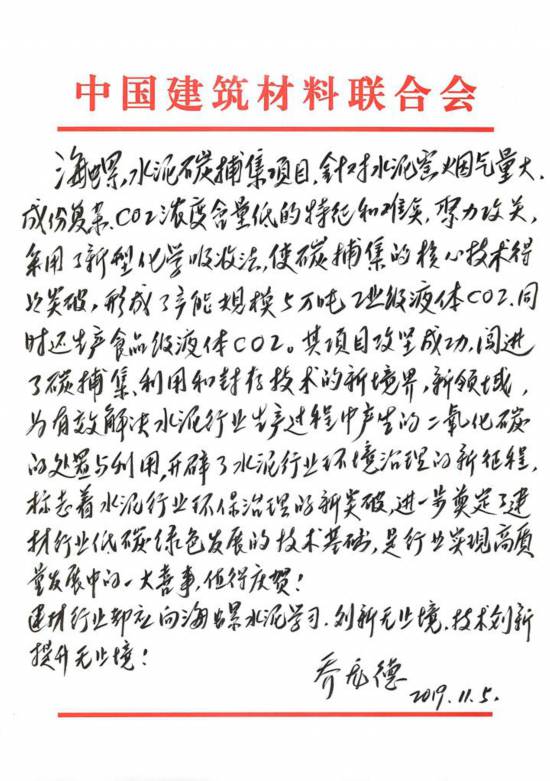 中国建筑材料联合会
海螺水泥碳捕集项目,针对水泥窑烟气量大、
成份复杂、CO2浓度含量低的特征和难点,聚力攻关,
采用了新型化学吸收法,使碳捕集的核心技术得
以突破,形成了产能规模5万吨工业级液体CO2.同
时还生产食品级液体CO2。其项目攻坚成功,闯进
了碳捕集、利用和封存技术的新境界,新领域,
为有效解决水泥行业生产过程中产生的二氧化碳
的处置与利用,开辟了水泥行业环境治理的新征程,
标志着水泥行业环保治理的新突破,进一步奠定了建
材行业低碳绿色发展的技术基础,是行业实现高质
量发展中的一大喜事,值得庆贺!
建材行业都应向海螺水泥学习.创新无止境,技术创新
提升无止境!
乔龙德
2019.11.5.